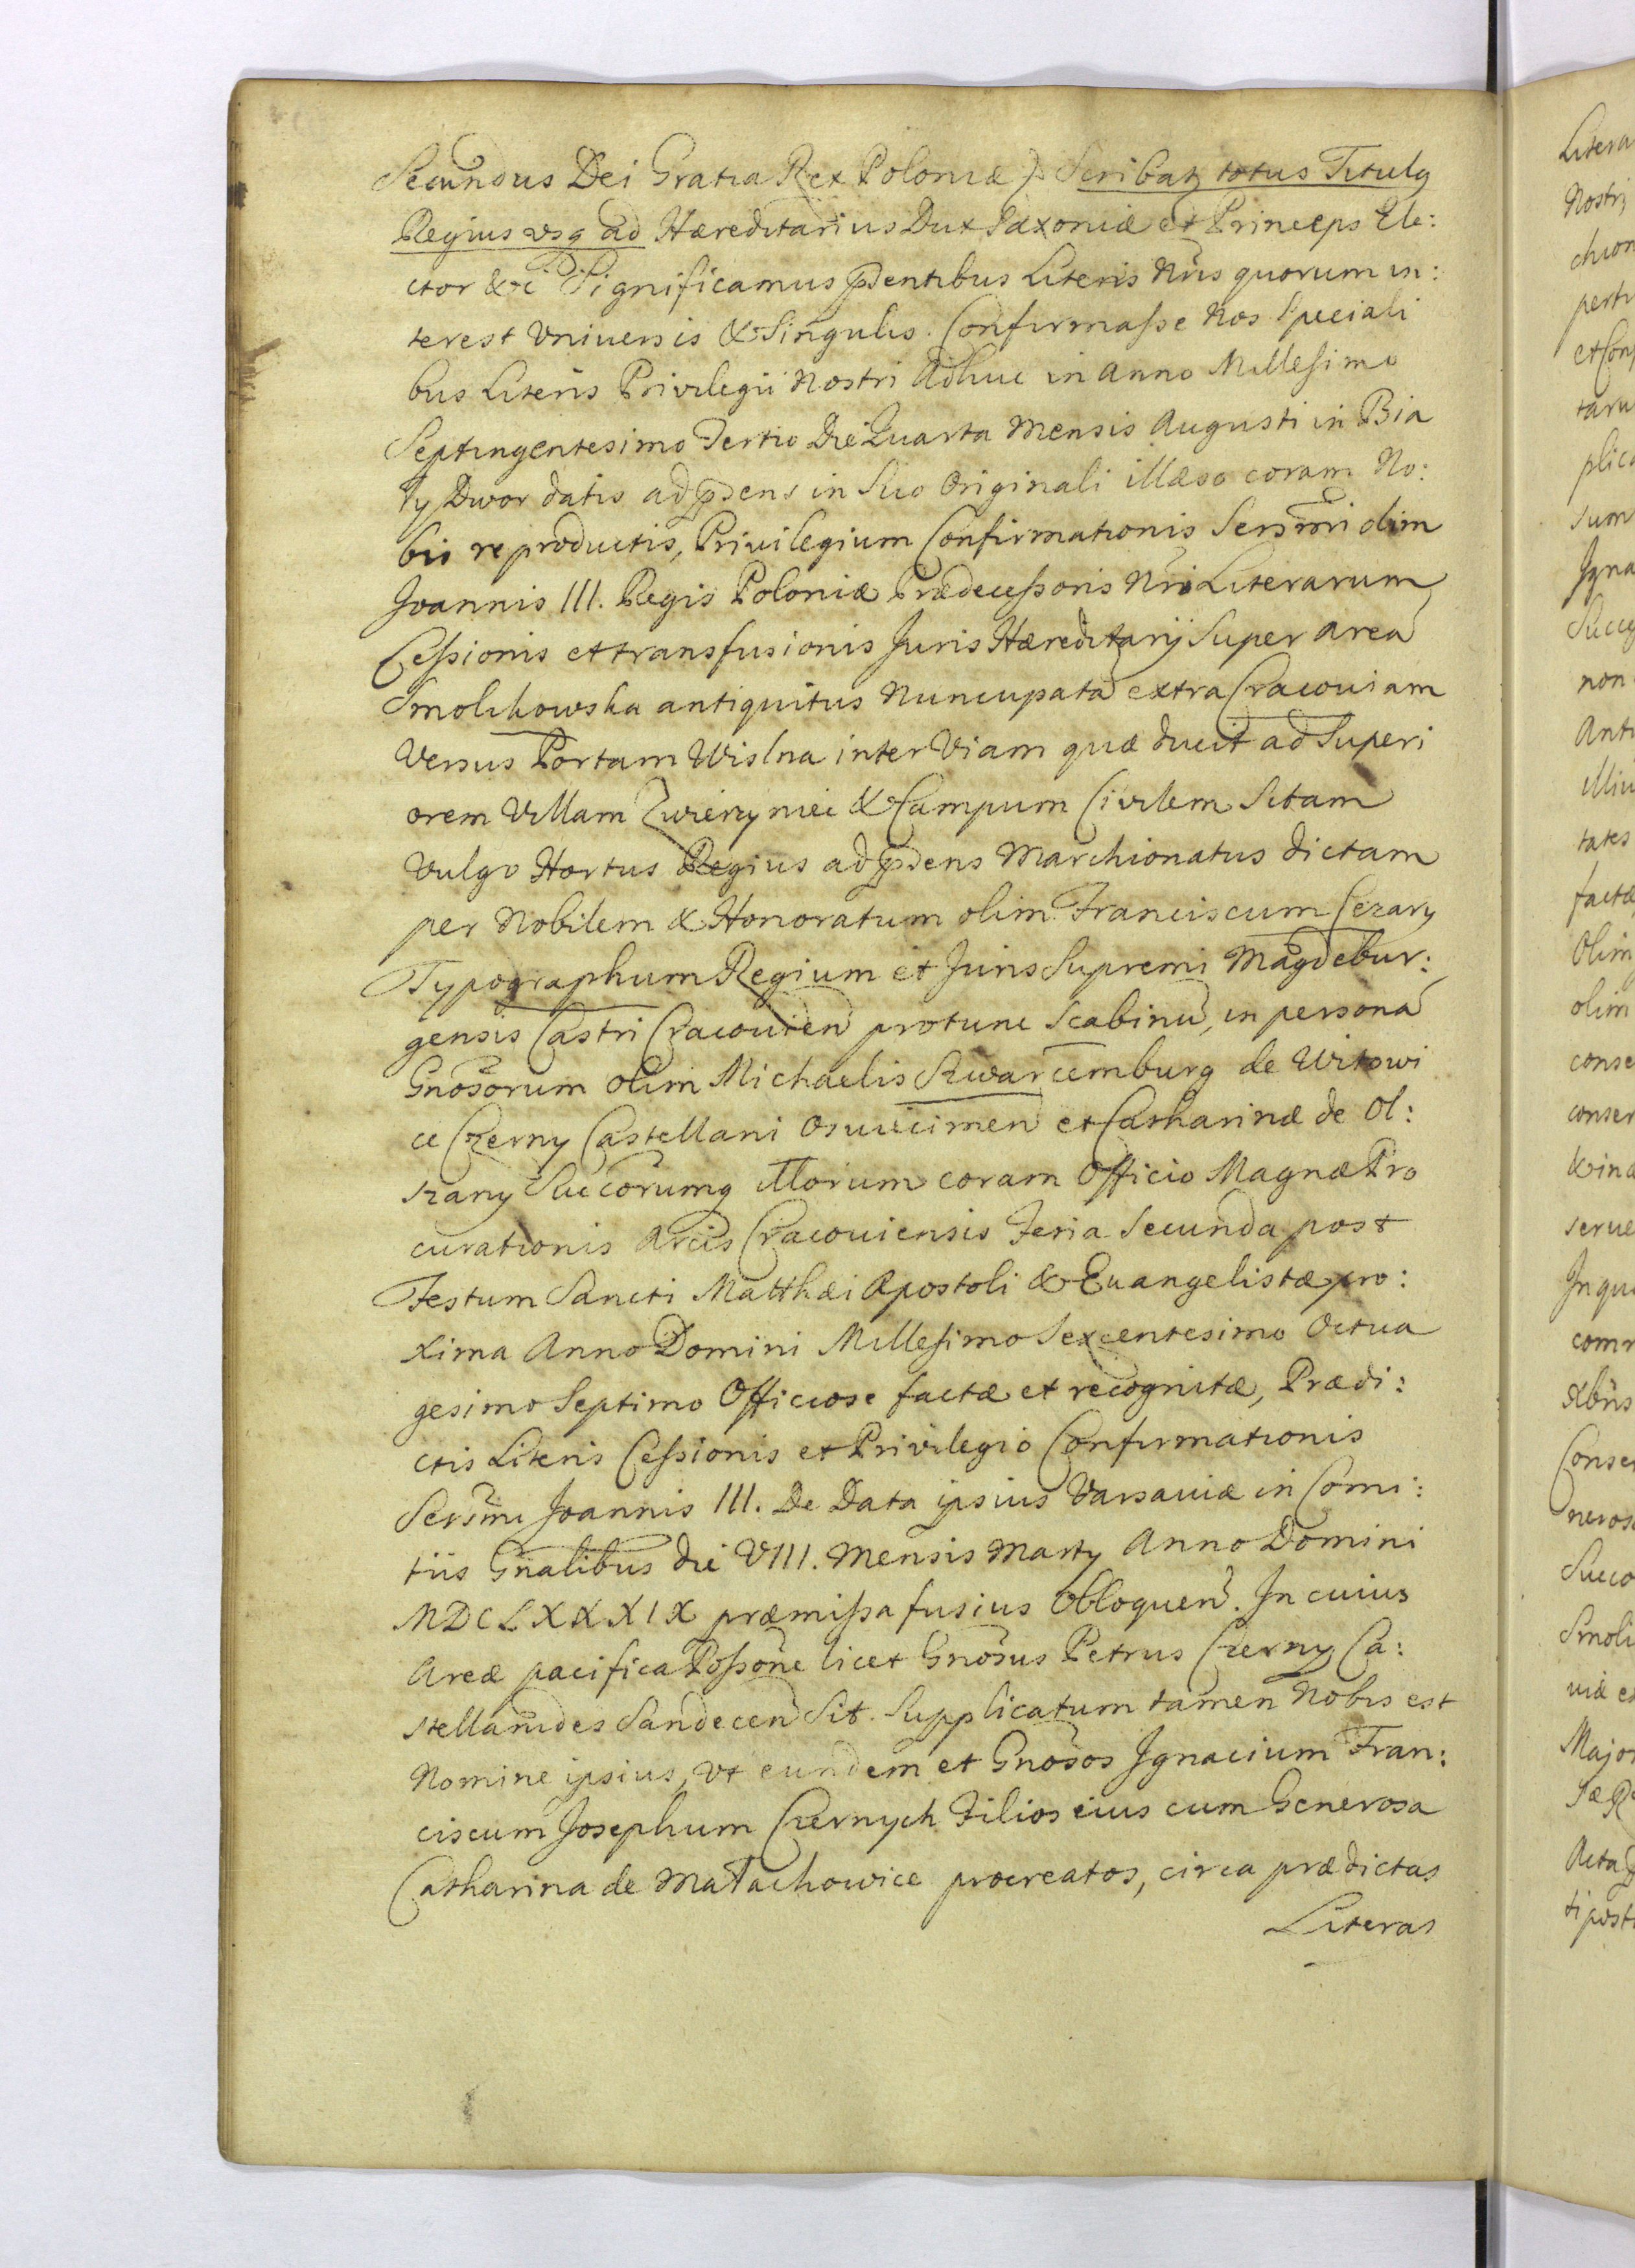 Secundus Dei Gratia Rex Poloniæ) Scribatꝫ totus Titulꝯ
Regius vsqꝫ ad Hæreditarius Dux Saxoniæ et Princeps Ele:
ctor &c Significamus p̃sentibus Literis Nr̃is quorum in:
terest Vniuersis & Singulis. Confirmasse Nos Speciali
bus Literis Privilegii Nostri Adhuc in Anno Millesimo
Septingentesimo Tertio Die Quarta Mensis Augusti in Bia
ły Dwor datis ad p̃sens in Suo Originali illæso coram No:
bis reproductis, Priuilegium Confirmationis Sers̃mi olim
Joannis III. Regis Poloniæ Prædecessoris Nr̃i Literarum
Cessionis et transfusionis Juris Hæreditarij Super area
Smolikowska antiquitus Nuncupata extra Cracouiam
Versus Portam Wislna inter Viam quæ ducit ad Superi
orem Villam Zwierzyniec & Campum Civilem Sitam
Vulgo Hortus Regius ad p̃sens Marchionatus dictam
per Nobilem & Honoratum olim Franciscum Cezary
Typographum Regium et Juris Supremi Magdebur:
gensis Castri Cracouien̄ protunc Scabinū, in persona
Gnõsorum olim Michaelis Szwarcemburg de Witowi
ce Czerny Castellani Osuiecimen̄ et Catharinæ de Ol:
szany Succõrumqꝫ illorum coram Officio Magnæ Pro
curationis Arcis Cracouiensis Feria Secunda post
Festum Sancti Matthæi Apostoli & Euangelistæ pro:
xima Anno Domini Millesimo Sexcentesimo Octua
gesimo Septimo Officiose factæ et recognitæ, Prædi:
ctis Literis Cessionis et Privilegio Confirmationis
Sers̃mi Joannis III. De Data ipsius Varsauiæ in Comi:
tiis Gñalibus die VIII. Mensis Martÿ Anno Domini
MDCLXXXIX præmissa fusius Obloquen̄. In cuius
Areæ pacifica Possõne licet Gnõsus Petrus Czerny Ca:
stellanides Sandecen̄ Sit. Supplicatum tamen Nobis est
Nomine ipsius, vt eundem et Gnõsos Ignacium Fran:
ciscum Josephum Czernych Filios eius cum Generosa
Catharina de Małachowice procreatos, circa prædictas
Literas